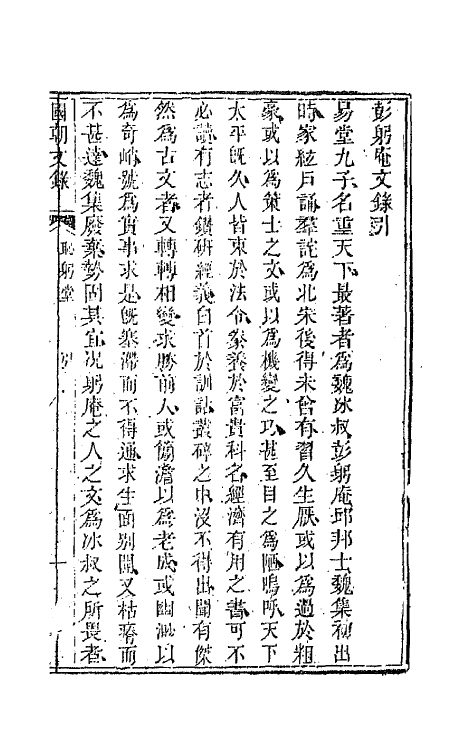 彭躬庵文錄引
易堂九子名重天下最著者為魏冰叔彭躬庵邱邦士魏集初出
時家絃戶誦羣詫為北宋後得未曾有習久生厭或以為過於粗
豪或以為策士之文或以為機變之巧甚至目之為陋嗚呼天下
太平旣久人皆束於法令豢養於富貴科名經濟有用之書可不
必讀有志者鑽研經義白首於訓詁叢碎之中沒不得出間有傑
然為古文者又轉轉相變求勝前人或簡澹以為老成或幽澀以
為奇峭號為實事求是旣泰滯而不得通求生面別開又枯瘠而
不甚達魏集廢棄勢固其宜况躬庵之人之文為冰叔之所畏者
國朝文錄
恥躬堂